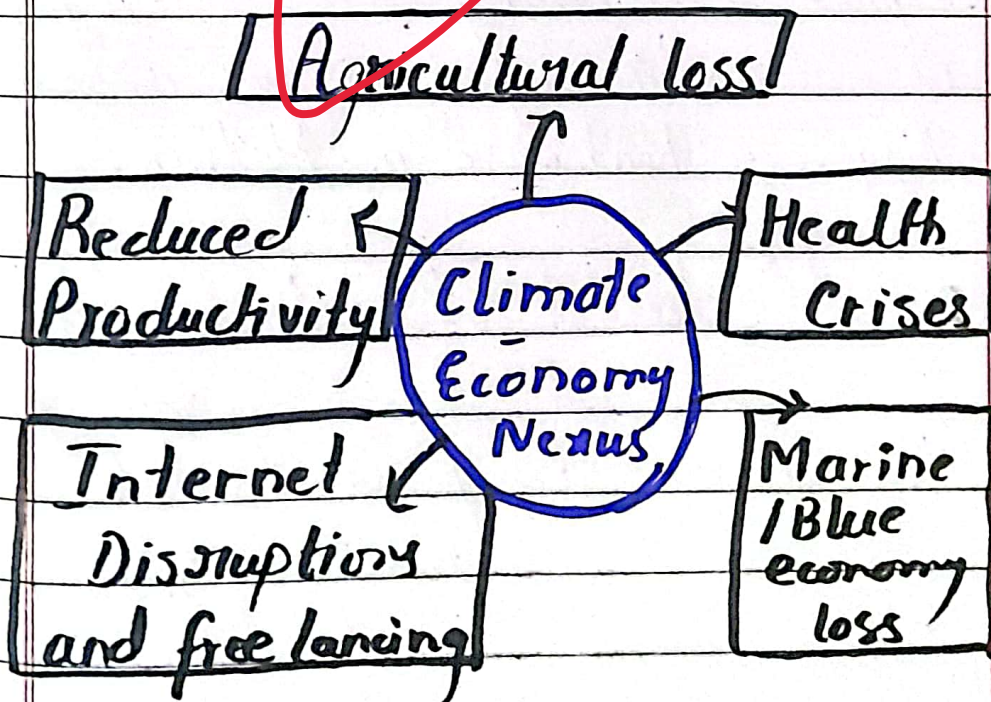 Agricultural loss
Reduced
Productivity
Health
Crises
Climate
Economy
Nexus
Internet
Disruptions
and freelancing
Marine
/Blue
economy
loss